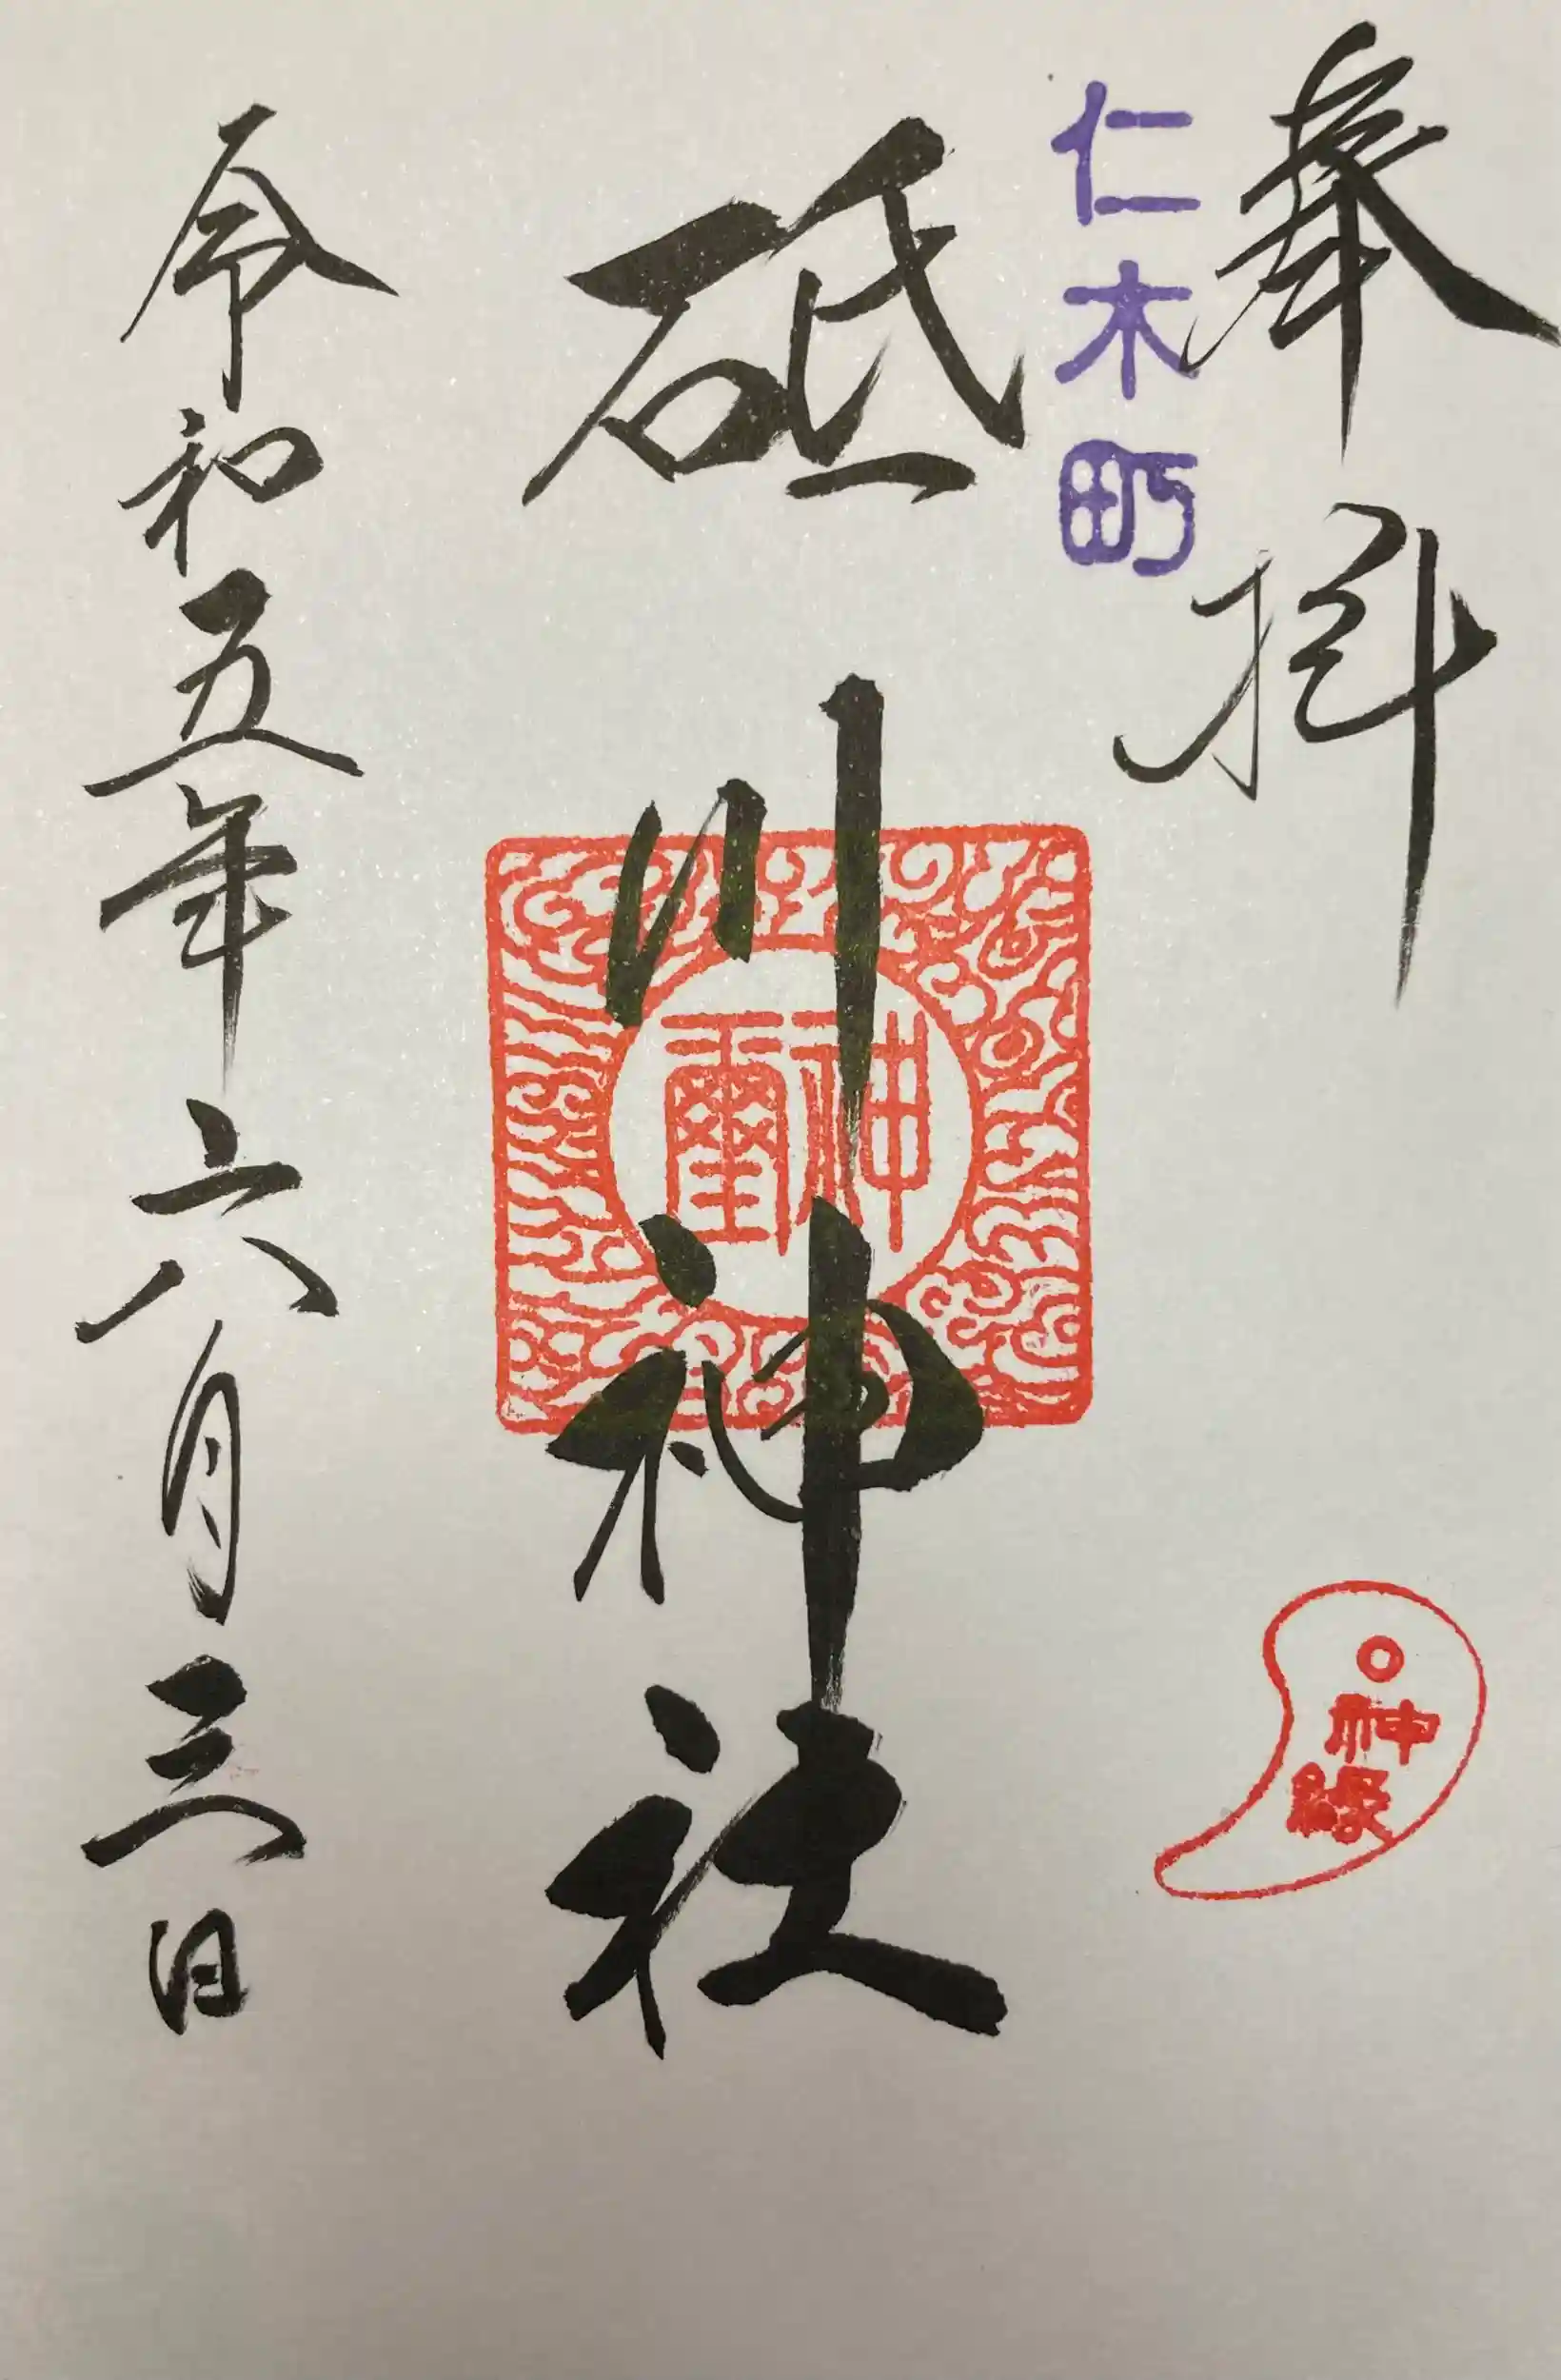 奉拝
仁木町
神縁
砥川神社
神璽
令和五年六月三日